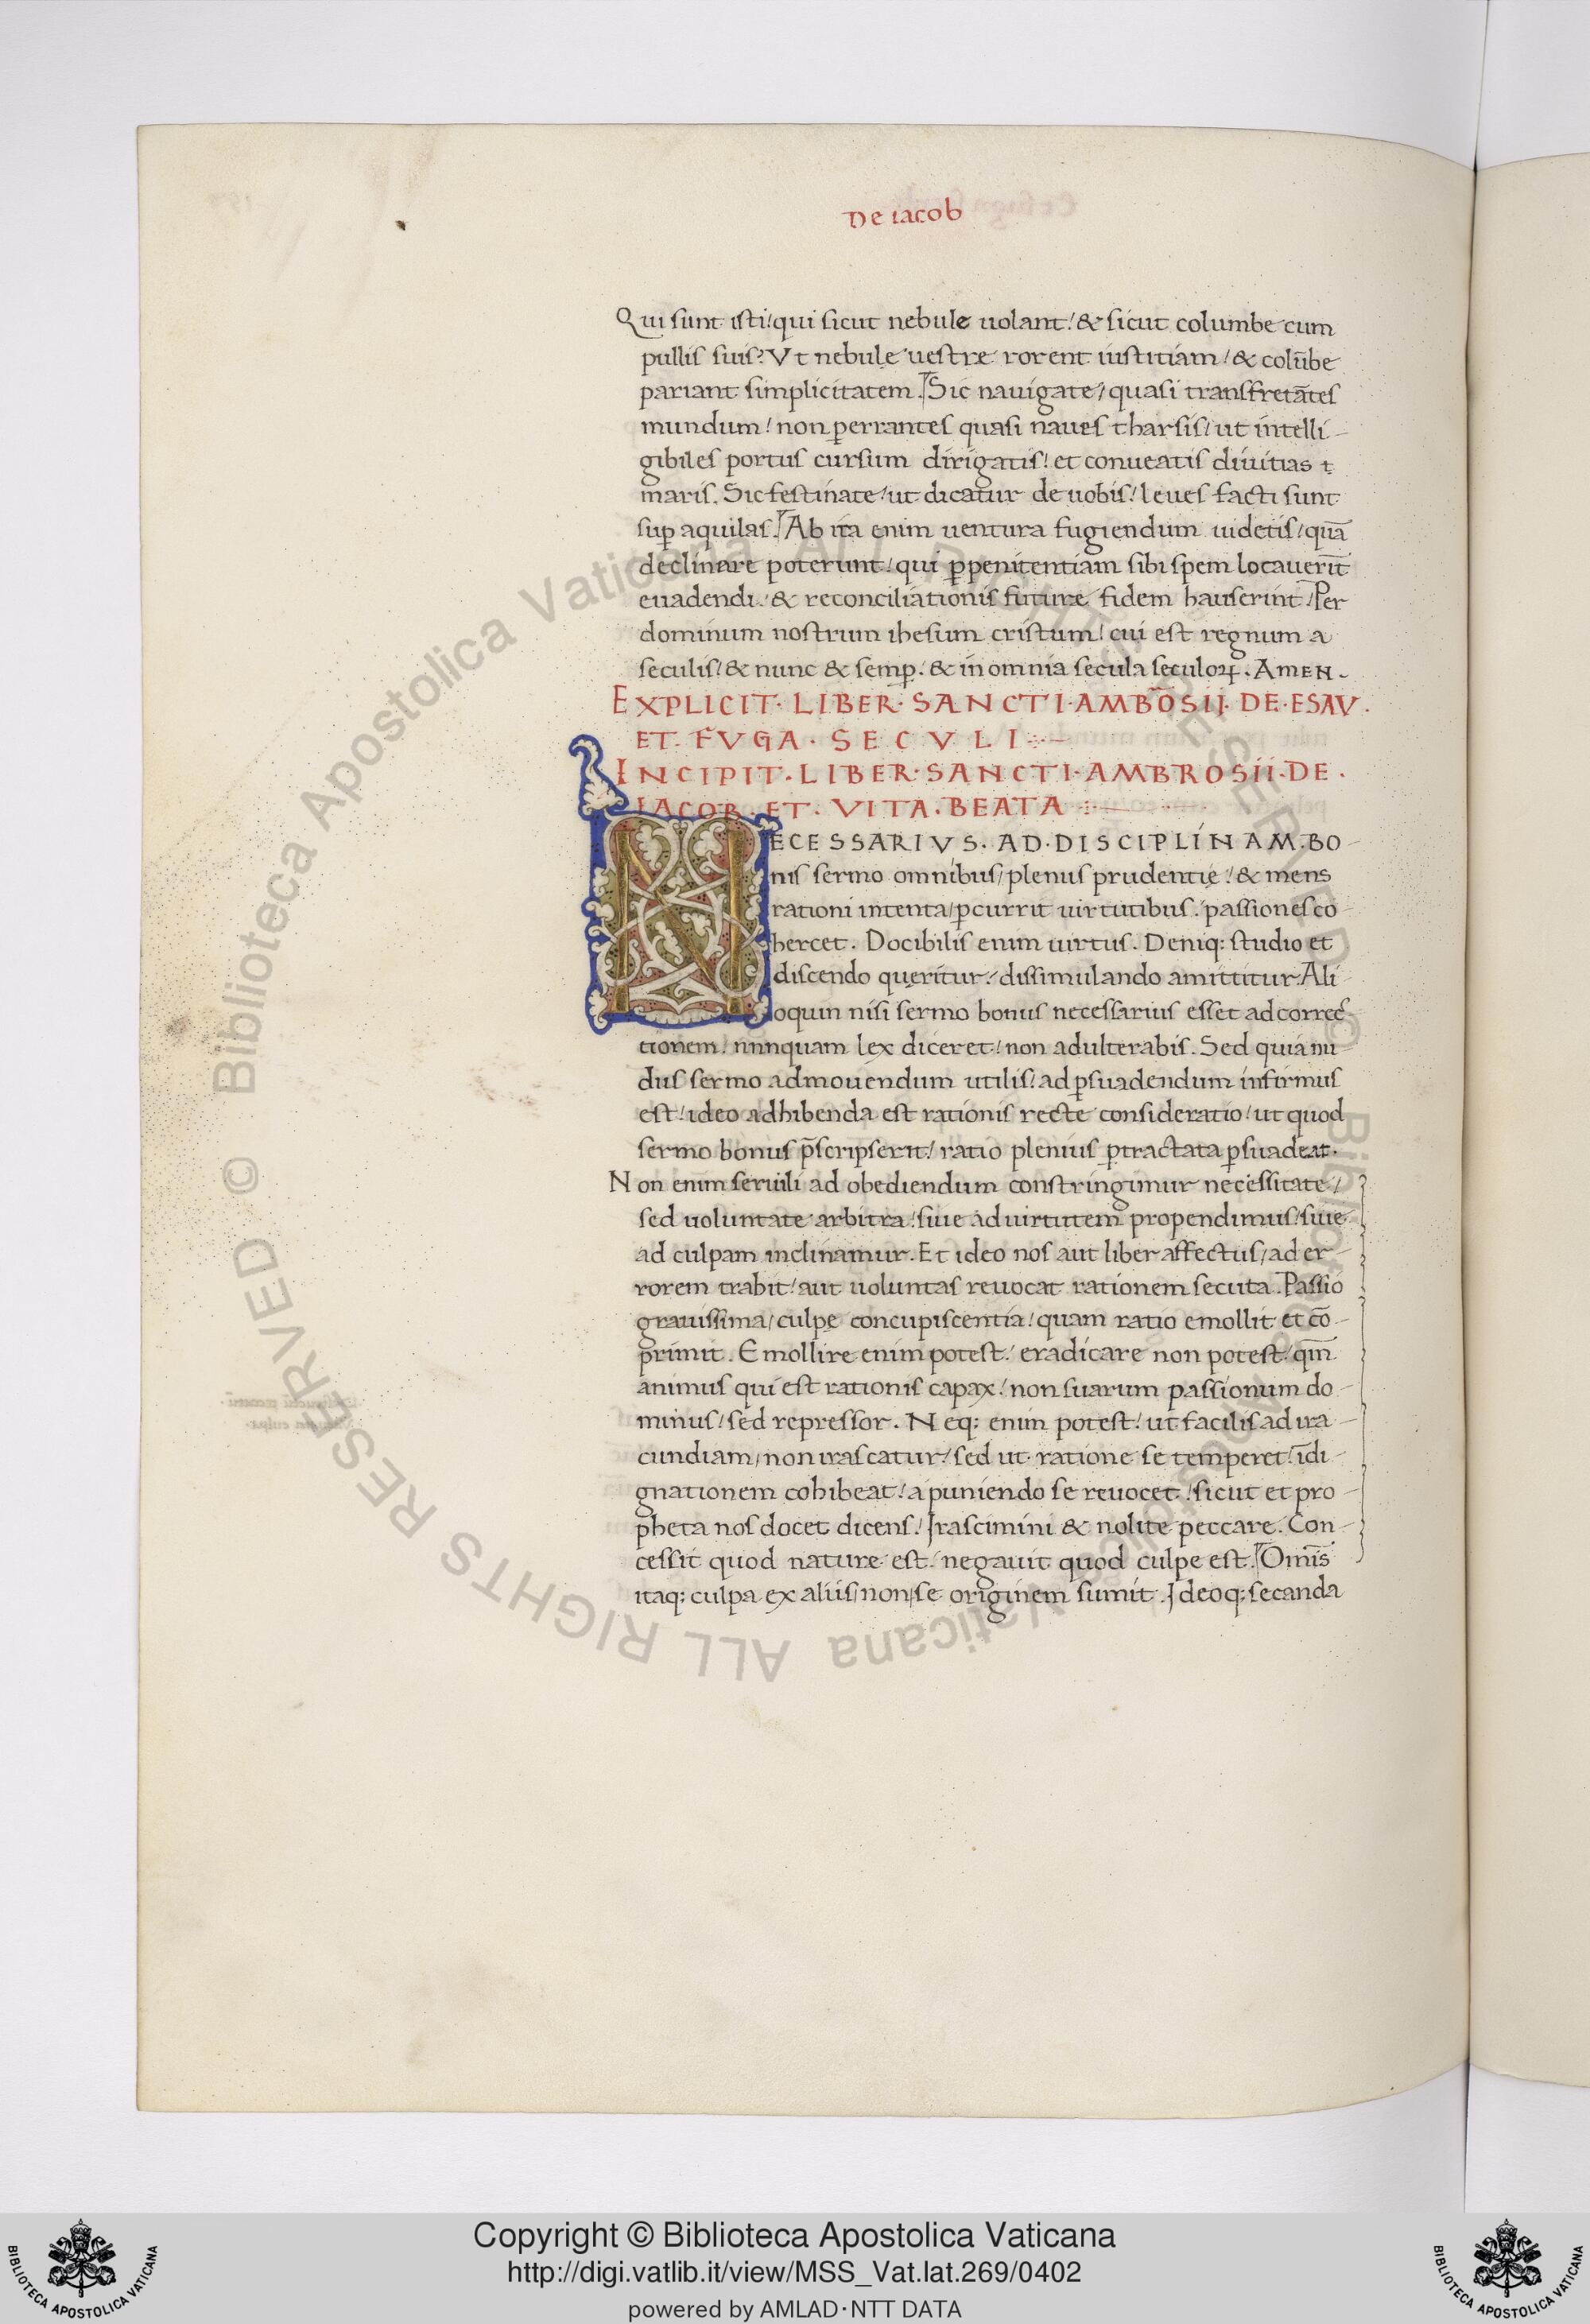 De iacob
Qui sunt isti/ qui sicut nebule uolant/ & sicut columbe cum
pullis suis? Vt nebule uestre rorent iustitiam/ & colūbe
pariant simplicitatem. Sic nauigate/ quasi transfretātes
mundum/ non ꝑerrantes quasi naues tharsis/ ut intelli-
gibiles portus cursum dirigatis/ et conueatis diuitias
maris. Sic festinate/ ut dicatur de uobis/ leues facti sunt
suꝑ aquilas. Ab ita enim uentura fugiendum uidetis/ quā
declinare poterunt/ qui ꝑ penitentiam sibi spem locauerīt
euadendi. & reconciliationis future fidem hauserint/ Per
dominum nostrum ihesum cristum/ cui est regnum a
seculis/ & nunc & semꝑ. & in omnia secula seculoꝝ. AMEN.
EXPLICIT. LIBER. SANCTI. AMBOSII. DE. ESAV.
ET. FVGA. SECVLI
INCIPIT. LIBER. SANCTI. AMBROSII. DE.
IACOB. ET. VITA. BEATA
NECESSARIVS. AD. DISCIPLINAM. BO-
nis sermo omnibus/ plenus prudentię/ & mens
rationi intenta/ ꝑcurrit uirtutibus. passiones co-
hercet. Docibilis enim uirtus. Deniq: studio et
discendo quęritur/ dissimulando amittitur. Ali-
oquin nisi sermo bonus necessarius esset ad correc-
tionem/ nunquam lex diceret/ non adulterabis. Sed quia nu-
dus sermo admouendum utilis/ ad ꝑsuadendum infirmus
est/ ideo adhibenda est rationis recte consideratio/ ut quod
sermo bonus p̄scripserit/ ratio plenius ꝑtractata ꝑsuadeat.
Non enim seruili ad obediendum constringimur necessitate/
sed uoluntate arbitra/ siue ad uirtutem propendimus/ siue
ad culpam inclinamur. Et ideo nos aut liber affectus/ ad er-
rorem trahit/ aut uoluntas reuocat rationem secuta. Passio
grauissima/ culpę concupiscentia/ quam ratio emollit et cō-
primit. Emollire enim potest/ eradicare non potest/ qm̄
animus qui est rationis capax/ non suarum passionum do-
minus/ sed repressor. Neq: enim potest/ ut facilis ad ira-
cundiam/ non irascatur/ sed ut ratione se temperet/ īdi-
gnationem cohibeat/ a puniendo se reuocet/ sicut et pro-
pheta nos docet dicens/ Irascimini & nolite peccare. Con-
cessit quod nature est/ negauit quod culpe est. Omīs
itaq: culpa ex aliis/ non se originem sumit. Ideoq: secanda
Biblioteca Apostolica Vaticana ALL RIGHTS RESERVED ©
Biblioteca Apostolica Vaticana ALL RIGHTS RESERVED ©
Copyright © Biblioteca Apostolica Vaticana
http://digi.vatlib.it/view/MSS_Vat.lat.269/0402
powered by AMLAD·NTT DATA
BIBLIOTECA APOSTOLICA VATICANA
BIBLIOTECA APOSTOLICA VATICANA